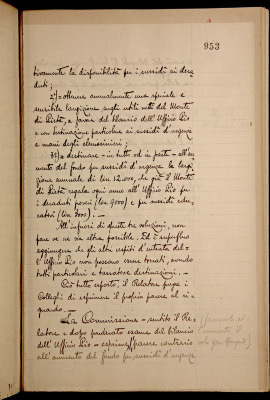 953
tivamente la disponibilità pei sussidi ai deca-
duti;
2°= ottenere annualmente una speciale e
sensibile largizione sugli utili netti del Monte
di Pietà, a favore del bilancio dell'Ufficio Pio
e con destinazione particolare ai sussidi d'urgenza
a mani degli elemosinieri;
3°)= destinare - in tutto od in parte - all'au-
mento del fondo pei sussidi d'urgenza la largi-
zione annuale di Lire 12.000, che già il Monte
di Pietà regala ogni anno all'Ufficio Pio pei
decaduti poveri (Lire 9000) e pei sussidi edu-
catori (Lire 3000). —
All'infuori di queste tre soluzioni, non
pare ve ne sia altra possibile. Ed è superfluo
aggiungere che gli altri cespiti d'entrata del-
l'Ufficio Pio non possono essere toccati, avendo
tutti particolari e tassative destinazioni. —
Ciò tutto esposto, il Relatore prega i
Colleghi di esprimere il proprio parere al ri-
guardo. —
La Commissione - sentito il Re-
latore e dopo ponderato esame del bilancio
dell'Ufficio Pio - esprime parere contrario
all'aumento del fondo pei sussidi d'urgenza